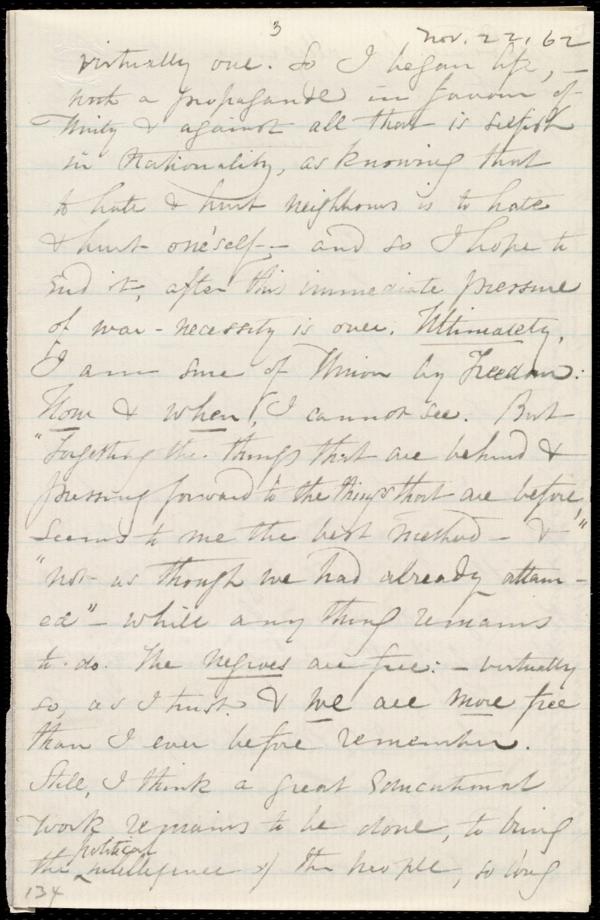 3
Nov. 22, 62
virtually one. So I began life, —
with a propaganda in favour of
Unity & against all that is selfish
in Nationality, as knowing that
to hate & hurt neighbours is to hate
& hurt one'self; — and so I hope to
end it, after this immediate pressure
of war-necessity is over. Ultimately,
I am sure of Union by Freedom:
How & when, I cannot see. But
"Forgetting the things that are behind &
pressing forward to the things that are before,"
seems to me the best method — &
"not as though we had already attain-
ed" — while any thing remains
to do. The negroes are free: — virtually
so, as I trust. & we are more free
than I ever before remember.
Still, I think a great Educational
work remains to be done, to bring
political
the intelligence of the people, so long
134